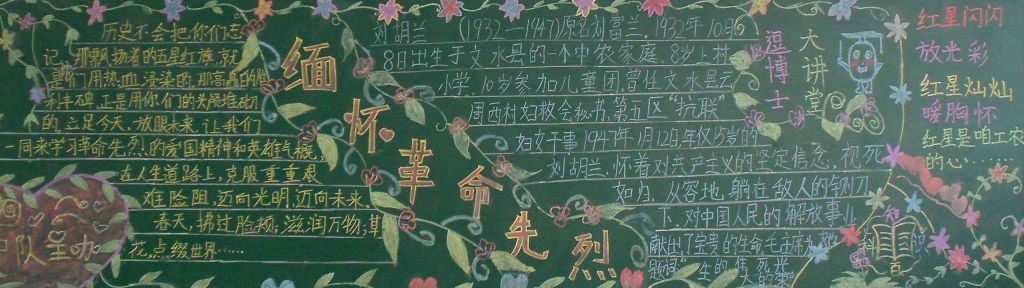 历史不会把你们忘
记，那飘扬着的五星红旗，就
是你们用热血浸染的，那高矗的胜
利丰碑，正是用你们的头颅堆砌
的。立足今天，放眼未来，让我们
一同来学习革命先烈的爱国精神和英雄气概，
在人生道路上，克服重重艰
难险阻，迈向光明，迈向未来。
春天，拂过脸颊，滋润万物，草
花，点缀世界……
中队主办
缅怀革命先烈
刘胡兰（1932—1947）原名刘富兰，1932年10月
8日出生于文水县的一个中农家庭，8岁上村
小学，10岁参加儿童团。曾任文水县云
周西村妇救会秘书、第五区“抗联”
妇女干事。1947年1月12日年仅15岁的
刘胡兰，怀着对共产主义的坚定信念，视死
如归，从容地躺在敌人的铡刀
下，对中国人民的解放事业
献出了宝贵的生命，毛主席为她
题词“生的伟大，死的光荣”
逗博士
大讲堂
科
红星闪闪
放光彩
红星灿灿
暖胸怀
红星是咱工农
的心……